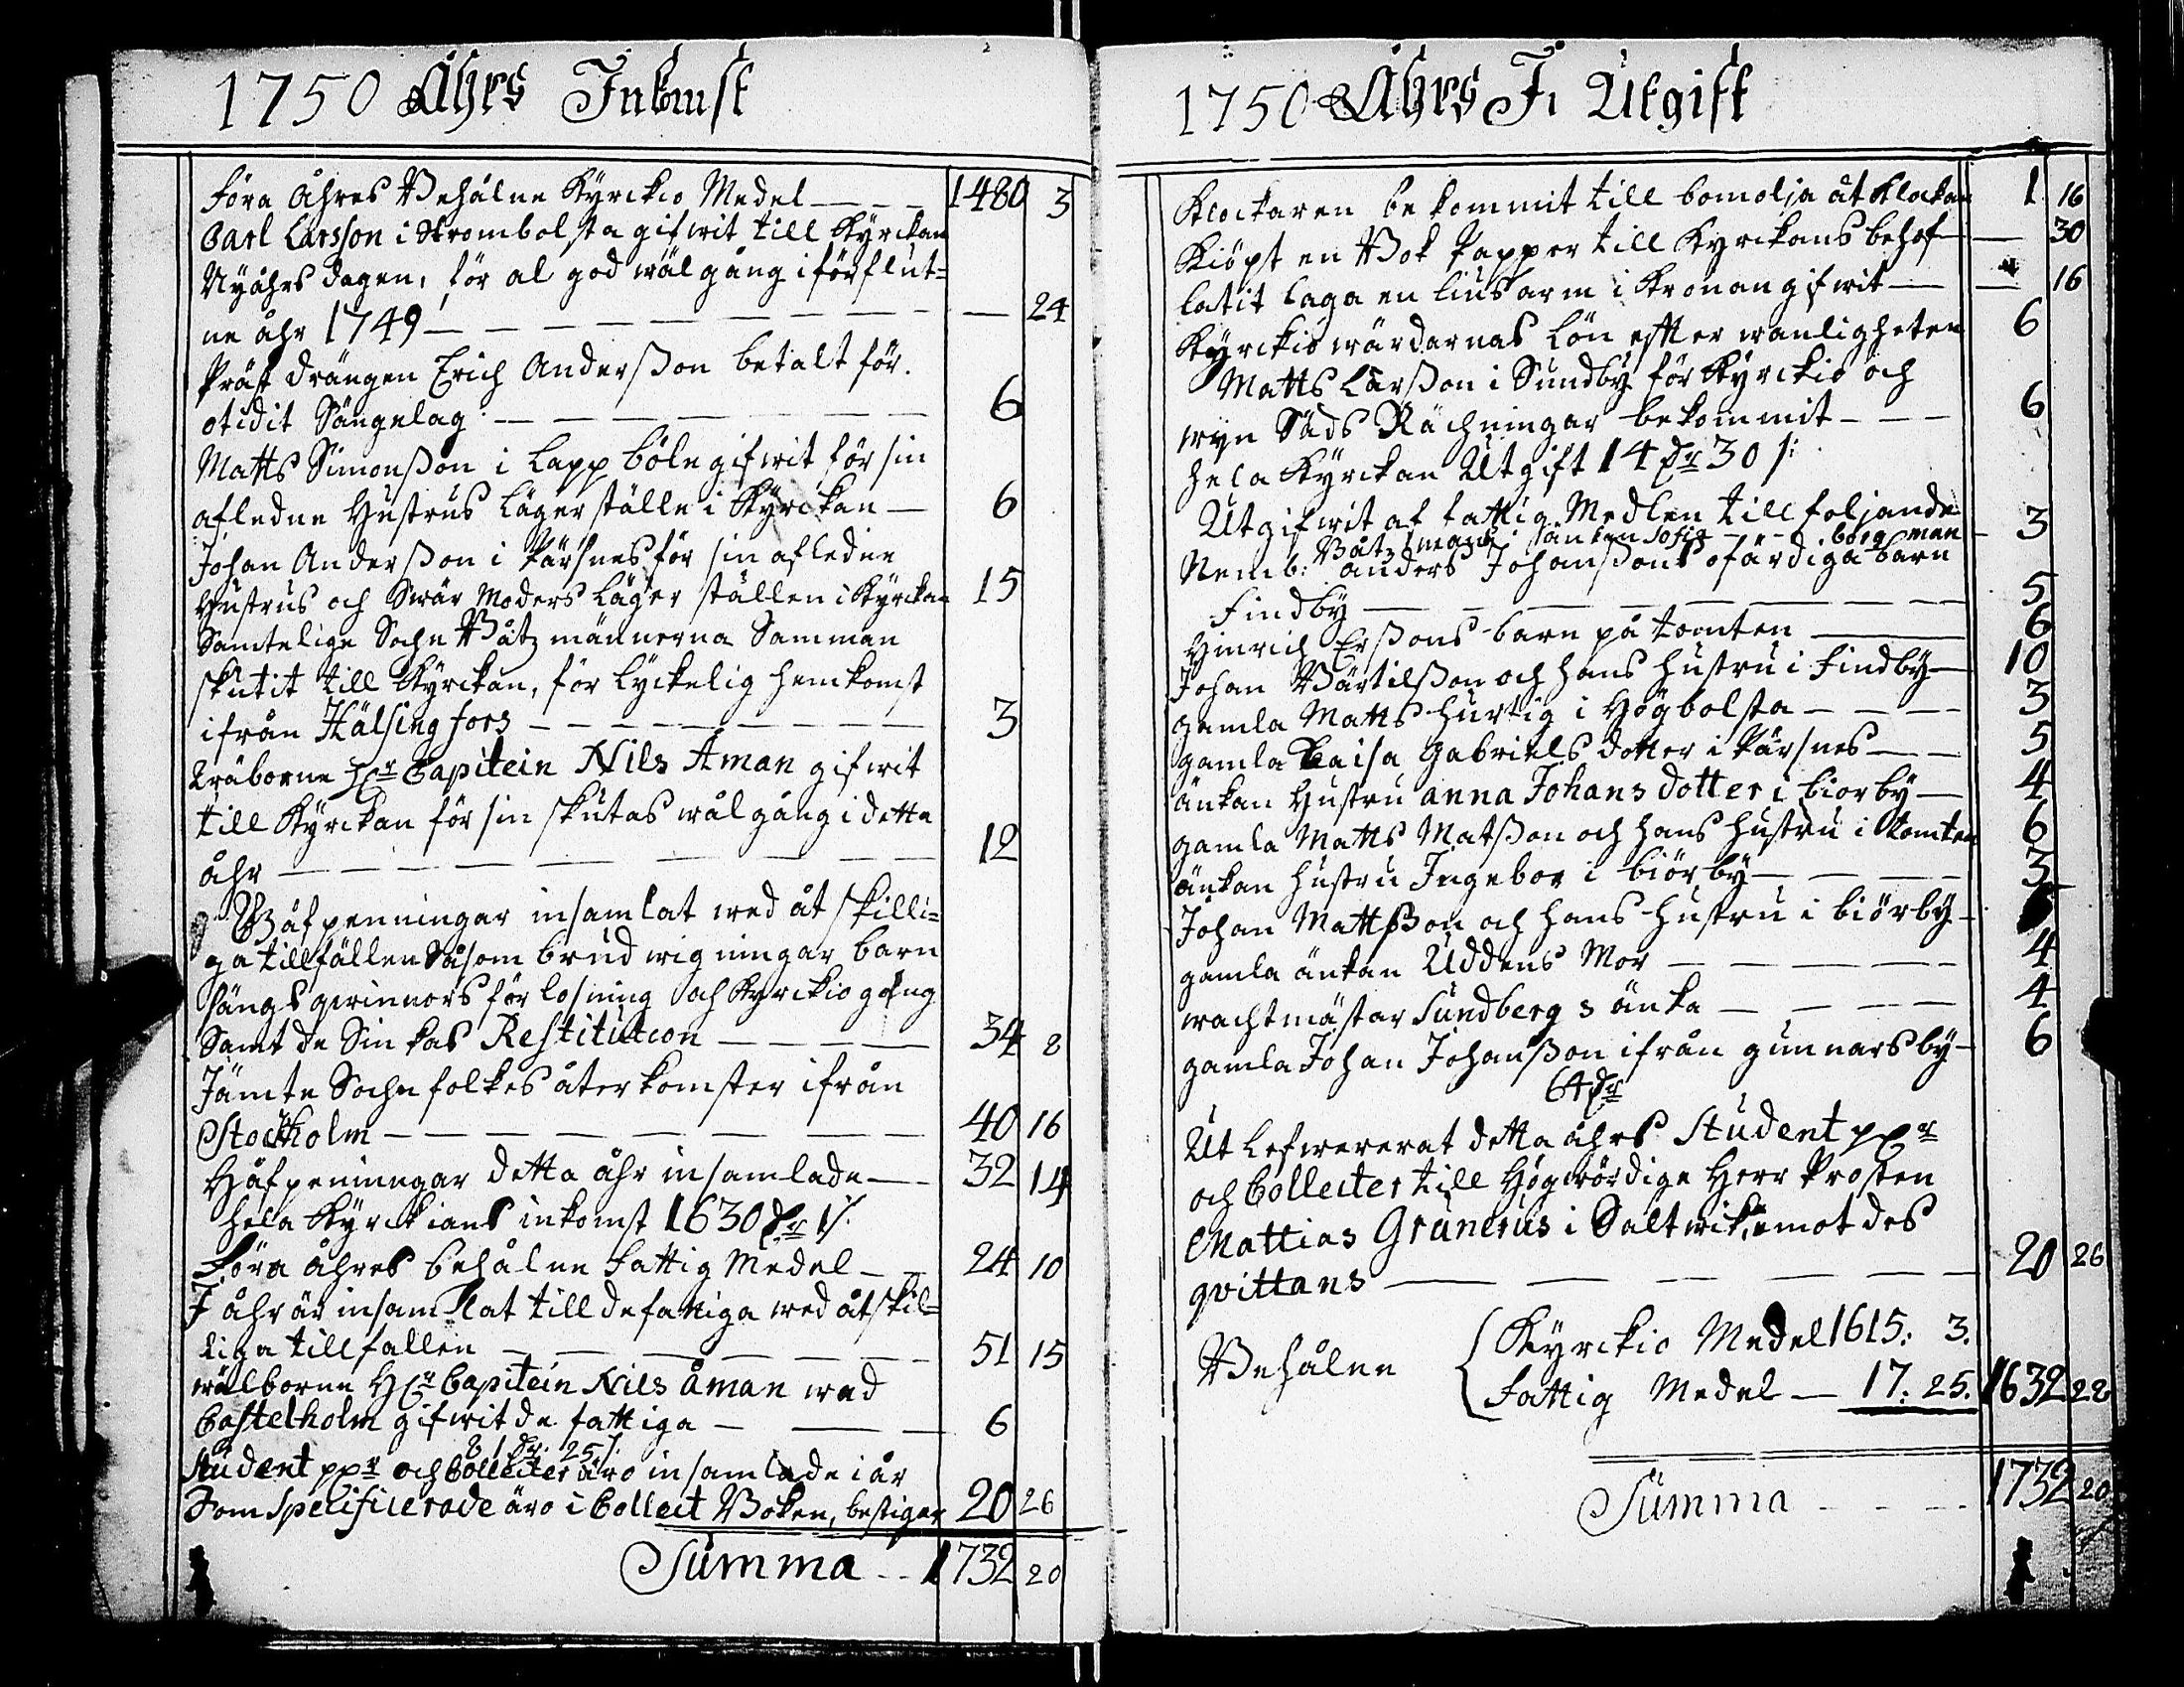 1750 Åhrs Inkomst
Föra Åhres Behålne Kyrckio Medel 1480 3
Carl Larsson i Strombolsta gifwit till Kyrckan
Nyåhrs dagen, för al god wälgång i förflut=
ne åhr 1749 — 24
Präst drängen Erich Anderßon betalt för
otidit Sängelag 6
Matts Simonßon i Lappböle gifwit för sin
afledne Hustrus Lägerställe i Kyrckan 6
Johan Anderßon i Pärsnes för sin afledne
Hustrus och Swär Moders Läger ställen i Kyrckan 15
Samtelige Sochne Båtz männerna Samman
skutit till Kyrckan, för Lyckelig hemkomst
ifrån Hälsingfors 3
Wälborne Hr Capitein Nils Åman gifwit
till Kyrckan för sin skutas wälgång i detta
åhr 12
Håfpenningar insamlat wed åtskilli=
ga tillfällen Såsom brudwigningar barn
sängs qwinnors förlosning och Kyrckiogång
Samt de Siukas Restitution 34 8
Jämte Sochnefolkes återkomster ifrån
Stockholm 40 16
Håfpeningar detta åhr insamlade 32 14
hela Kyrckians inkomst 1630 dr 1/.
Föra åhres behålne Fattig Medel 24 10
I åhr är insamlat till de fattiga wed åtskil=
liga tillfallen 51 15
wälborne Hr Capitein Nils Åman wed
Castelholm gifwit de fattiga 6
81 dr. 25/.
Student ppr och Collecter äro insamlade i år
som specificerade äro i Collect Boken, bestiger 20 26
Summa 1732 20
1750 Åhrs F. Utgift
Klockaren bekommit till bomolja åt Klockan 1 16
Kiöpt en Bok Papper till Kyrckans behof — 30
latit laga en liusarm i Kronan gifwit — 16
Kyrckiowärdarnas Lön efter wanligheten 6
Matts Larßon i Sundby för Kyrckio och
wyn Säds Rächningar bekommit 6
hela Kyrckan Utgift 14 dr 30 /:
Utgifwit af fattig Medlen till foljande
Båtzmans änkan Sofia borgman 3
Nemb: anders Johanßons ofärdiga barn
Findby 5
Hinrich Erßons barn på tomten 6
Johan Bärtilßon och hans hustru i Findby 10
gamla Matts Hurtig i Högbolsta 3
gamla Caisa Gabriels dotter i Pärsnes 5
änkan Hustru anna Johans dotter i biorby 4
gamla Matts Matßon och hans hustru i tomten 6
änkan hustru Ingebor i biörby 3
Johan Mattßon och hans hustru i biörby
gamla änkan Uddens Mor 4
wachtmästar Sundbergs änka 4
gamla Johan Johanßon ifrån gunnarsby 6
64 dr
Ut lefwererat detta åhrs Student ppr
och Collecter till Högwördige Herr Prosten
Mattias Grunerus i Saltwik, emot des
qvittans 20 26
Behålne
Kyrckio Medel 1615: 3.
Fattig Medel — 17. 25. 1632 28
Summa 1732 20